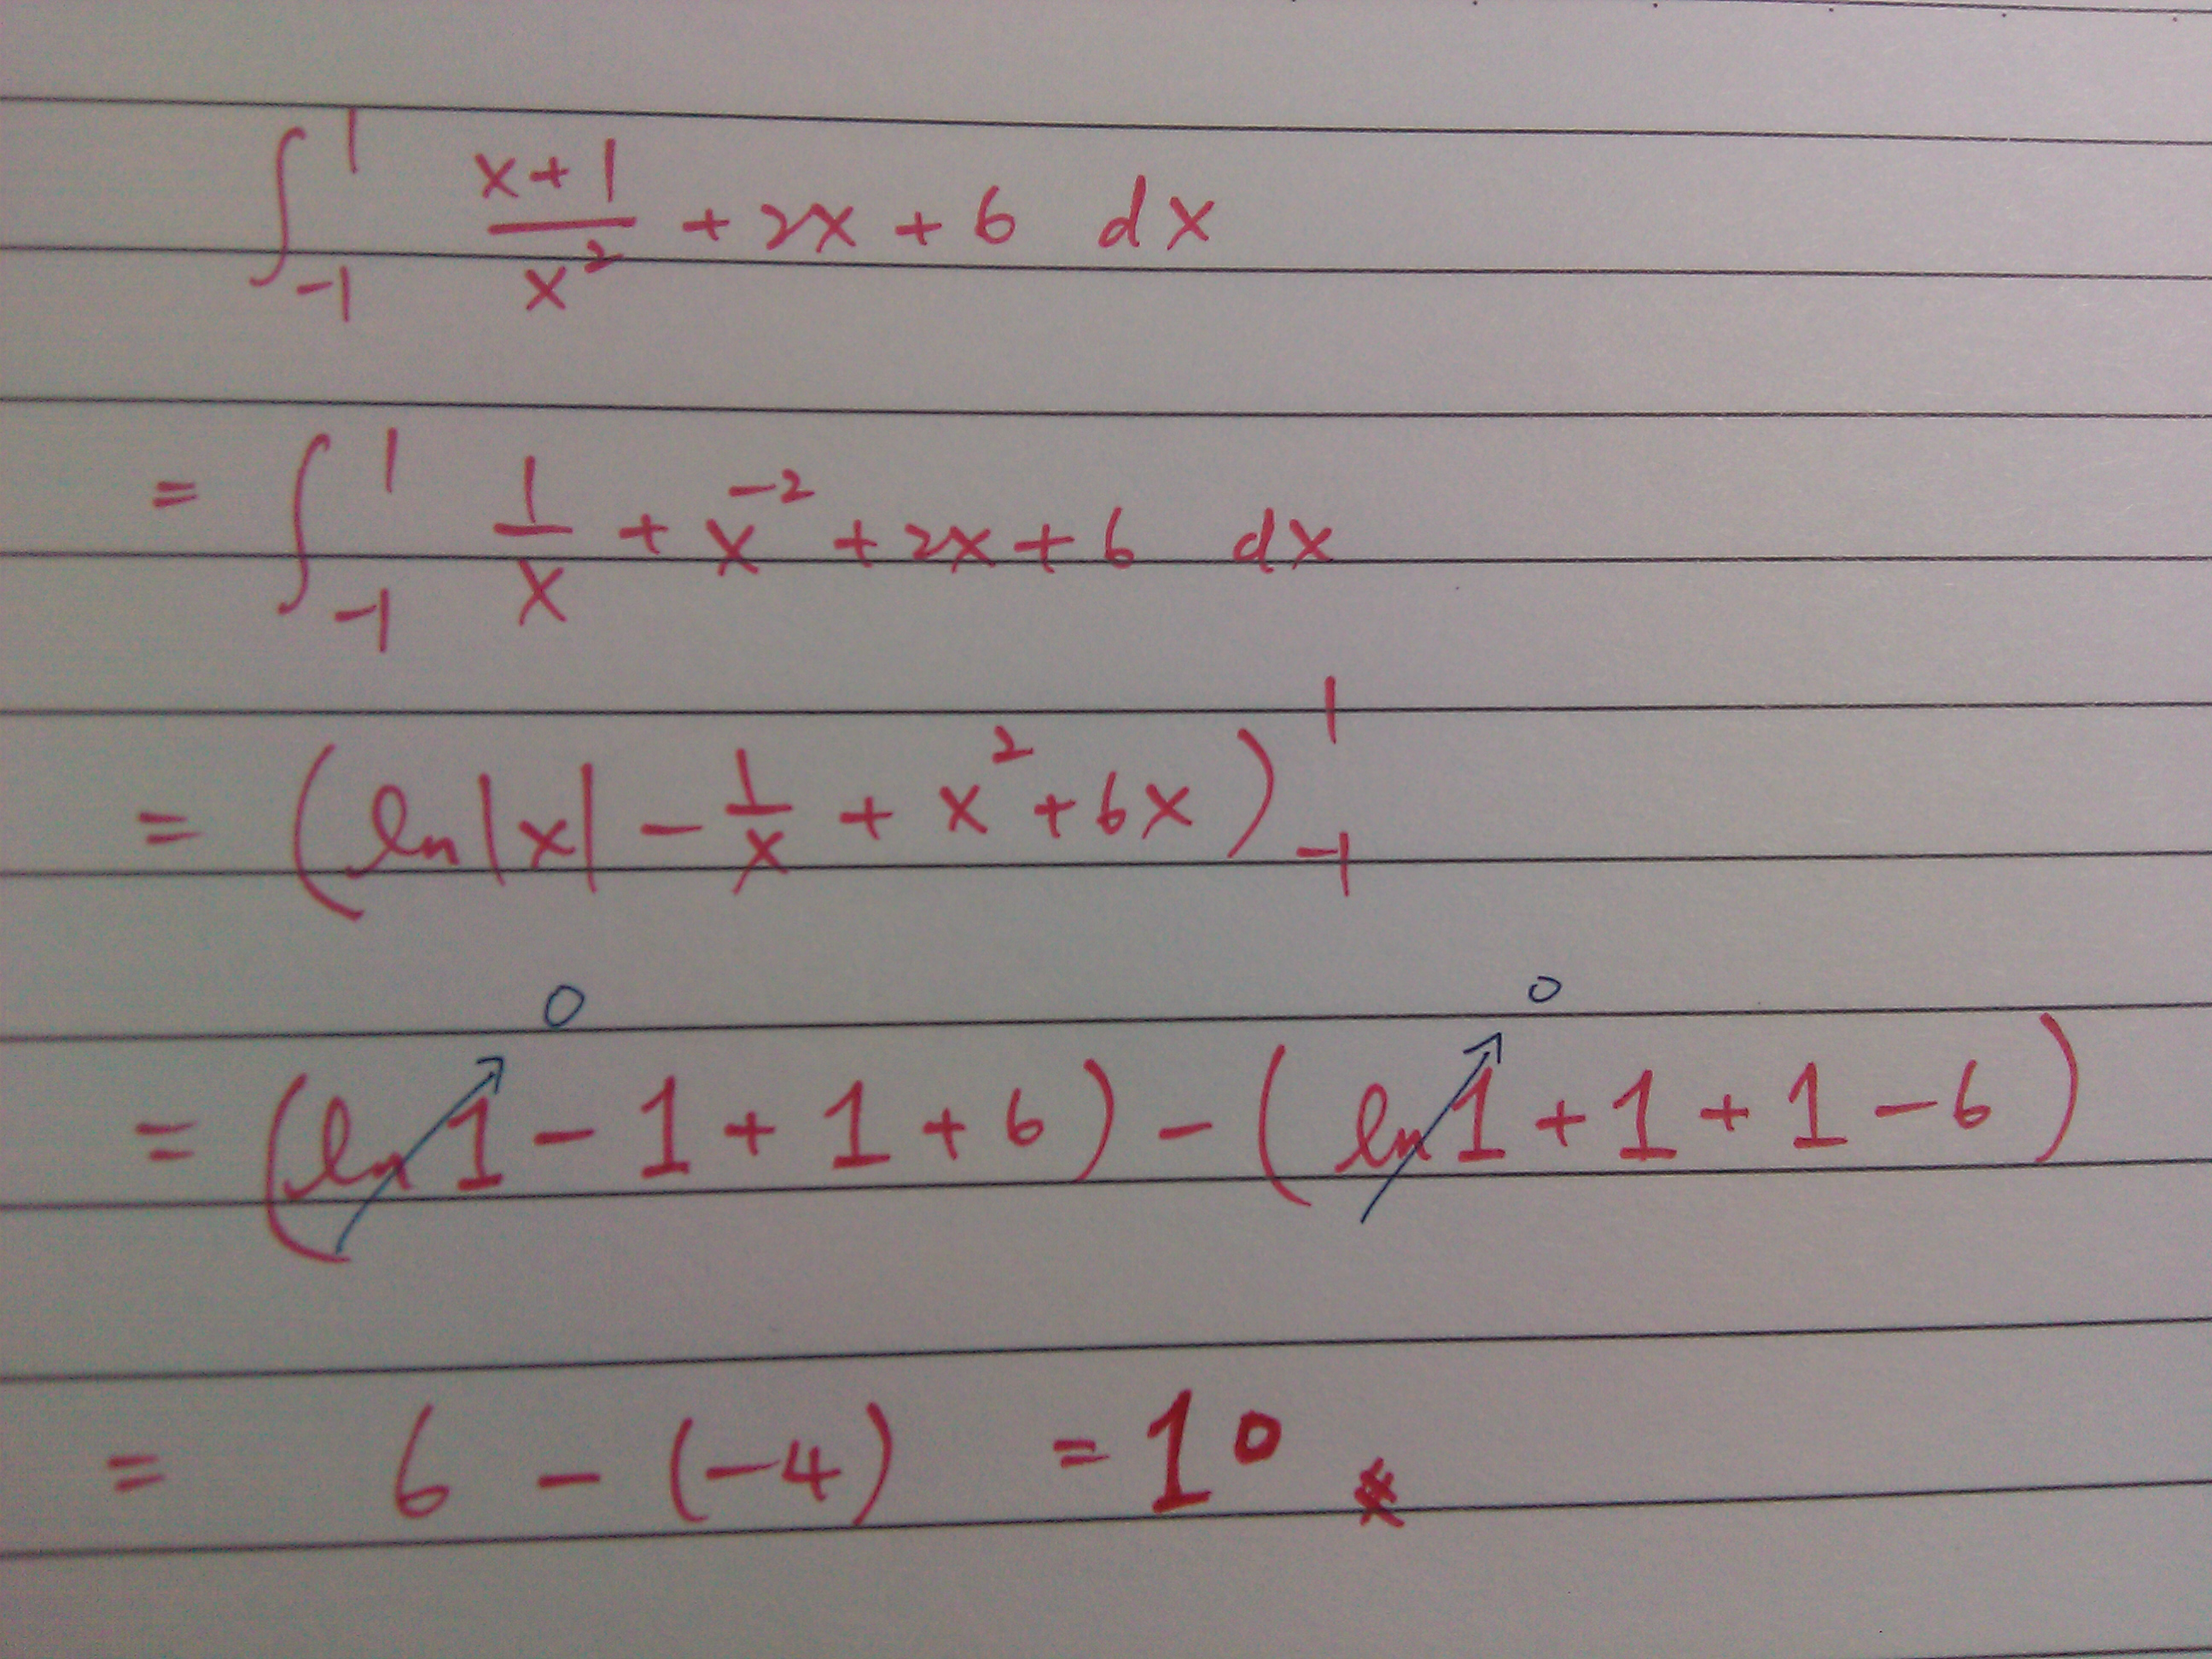 ∫₋₁¹ (x+1)/x² + 2x + 6 dx
= ∫₋₁¹ 1/x + x⁻² + 2x + 6 dx
= (ln|x| - 1/x + x² + 6x)₋₁¹
0 0
= (ln 1 - 1 + 1 + 6) - (ln 1 + 1 + 1 - 6)
= 6 - (-4) = 10